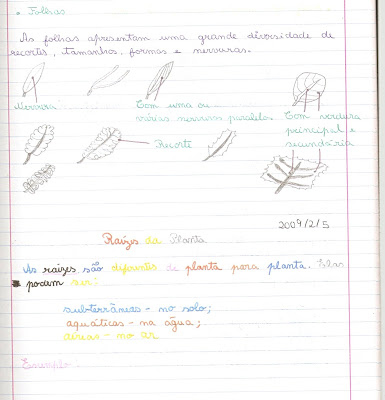 • Folhas
As folhas apresentam uma grande diversidade de
recortes, tamanhos, formas e nervuras.
Nervura
Com uma ou
várias nervuras paralelas.
Com nervura
principal e
secundária
Recorte
2009/2/5
Raízes da Planta
As raízes são diferentes de planta para planta. Elas
podem ser:
subterrâneas - no solo;
aquáticas - na água;
aéreas - no ar
Exemplo: